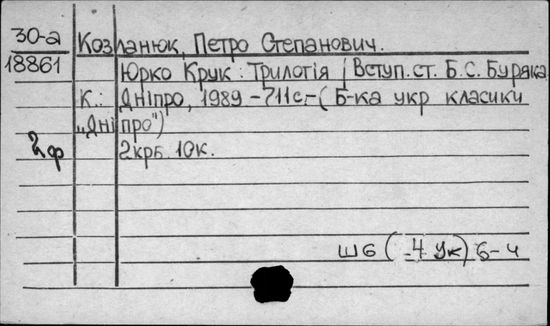 30-а Козланюк, Петро Степанович.
18861 Юрко Крук : Трилогія / Вступ. ст. Б.С. Буряка
К.: Дніпро, 1989 - 711с.- ( Б-ка укр класики
„Дніпро")
2 крб. 10к.
Ш6 ( -4 Ук) 6-4